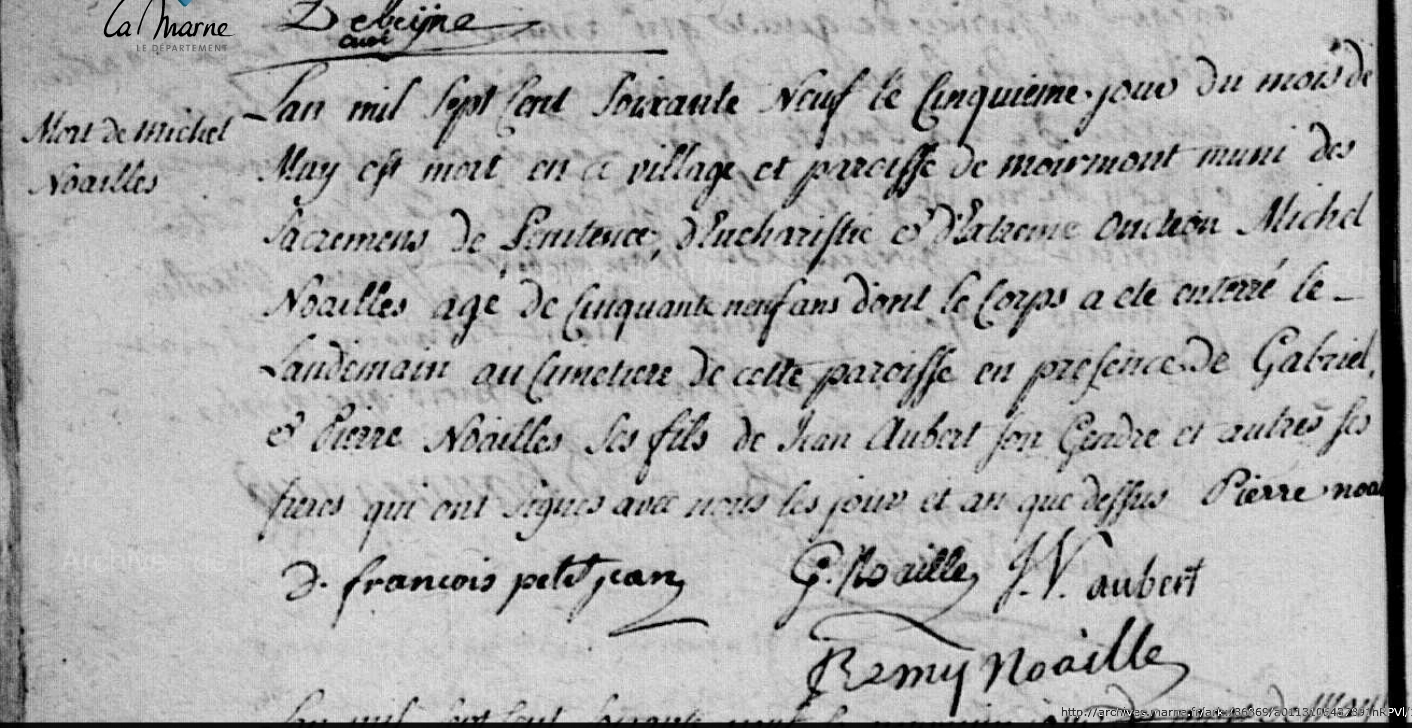 La Marne
LE DÉPARTEMENT
Debeijne
curé
Mort de Michel
Noailles
Lan mil sept cent soixante Neuf le cinquieme jour du mois de
May est mort en ce village et paroisse de moirmont muni des
sacremens de Penitence, d'Eucharistie & d'Extreme onction Michel
Noailles agé de cinquante neuf ans dont le corps a ete enterré le
Landemain au cimetiere de cette paroisse en presence de Gabriel,
& Pierre Noailles ses fils de Jean Aubert son Gendre et autres ses
freres qui ont signes avec nous les jour et an que dessus Pierre noai
D. francois petit jean G. Noailles J. V. aubert
Remy Noaille